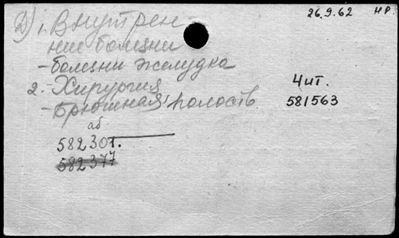 26.9.62 НР
Д) 1. Внутрен-
ние болезни
- болезни желудка
2. Хирургия
- брюшная полость
Чит.
581563
аб
582301.
582377